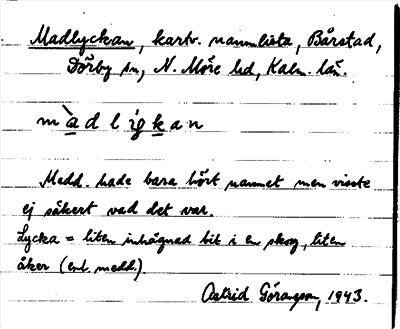 Madlyckan, kartv. namnlista, Bårstad,
Dörby sn, N. Möre hd, Kalm. län.
màdligkan
Medd. hade bara hört namnet men visste
ej säkert vad det var.
Lycka = liten inhägnad bit i en skog, liten
åker (enl. medd.).
Astrid Göranson, 1943.